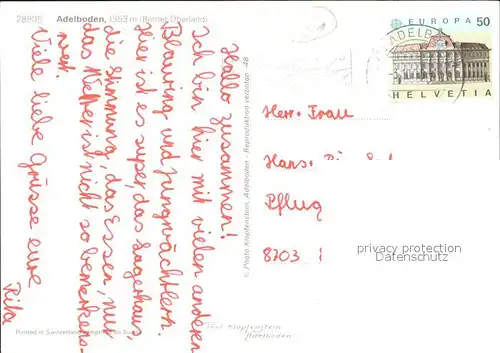 28905 Adelboden, 1353 m (Berner Oberland)
Hallo zusammen!
Ich bin hier mit vielen anderen
Blauring und Jungwächtlern.
Hier ist es super, das Lagerhaus,
die Stimmung, das Essen, nur
das Wetter ist nicht so bemerkens-
wert.
Viele liebe Grüsse eure
Rita
Printed in Switzerland
© Photo Klopfenstein, Adelboden - Reproduktion verboten 48
Klopfenstein
Adelboden
EUROPA 50
HELVETIA
ADELBODEN
Herr Frau
Hans
Pflug
8703
privacy protection
www.akpool.co.uk